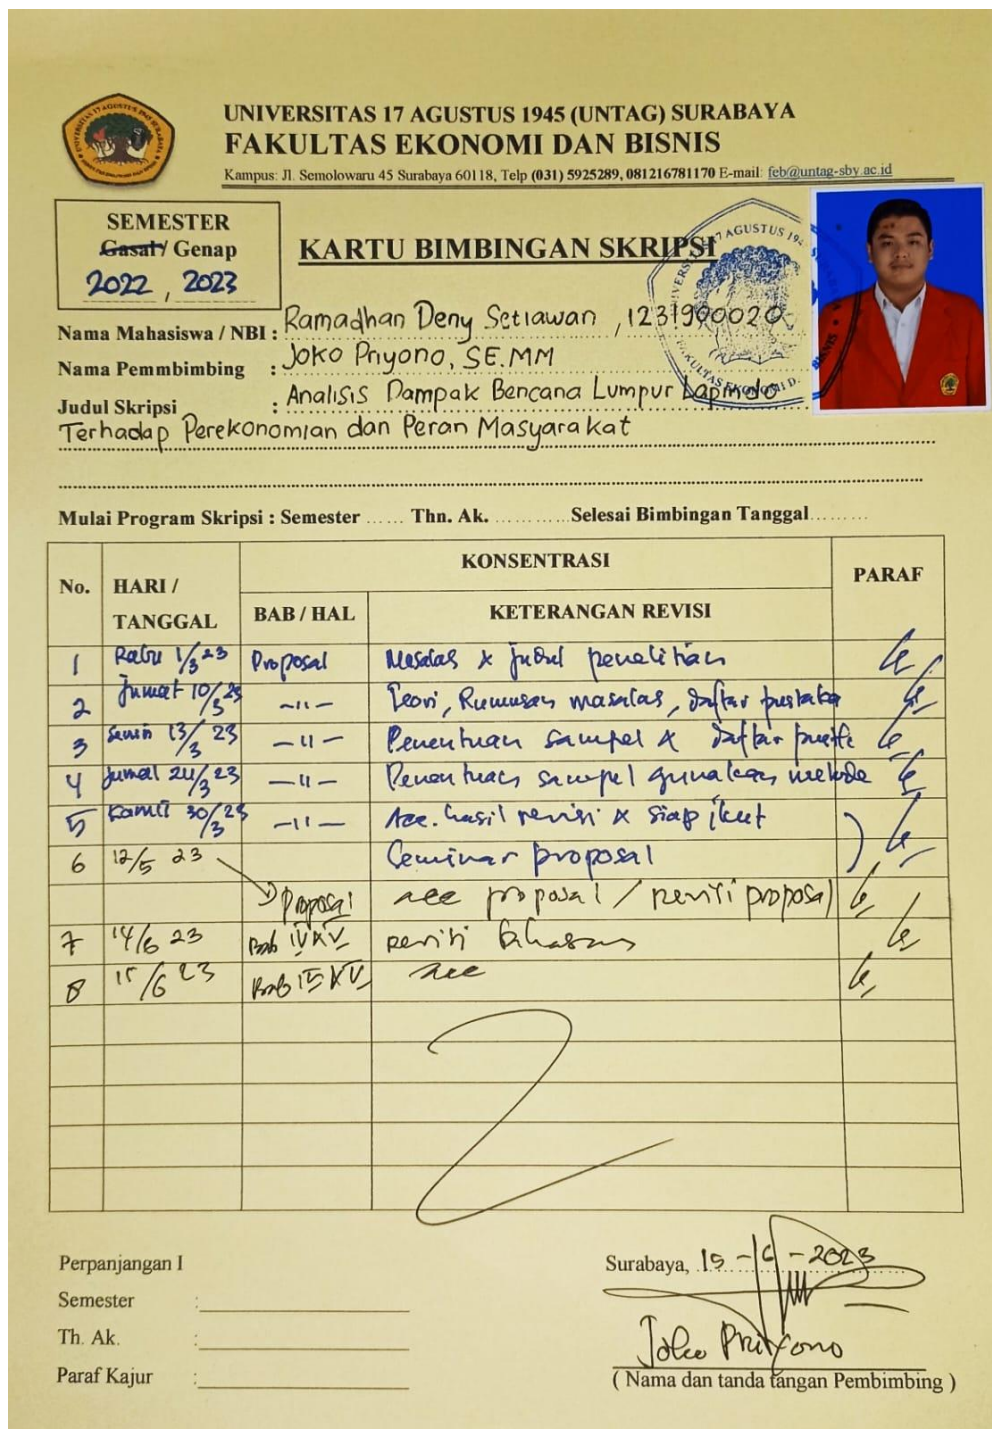 UNIVERSITAS 17 AGUSTUS 1945 (UNTAG) SURABAYA
FAKULTAS EKONOMI DAN BISNIS
Kampus: Jl. Semolowaru 45 Surabaya 60118, Telp (031) 5925289, 081216781170 E-mail: feb@untag-sby.ac.id
SEMESTER
Gasal / Genap
2022, 2023
KARTU BIMBINGAN SKRIPSI
Nama Mahasiswa / NBI : Ramadhan Deny Setiawan, 1231900020
Nama Pemmbimbing : Joko Priyono, SE.MM
Judul Skripsi : Analisis Dampak Bencana Lumpur Lapindo
Terhadap Perekonomian dan Peran Masyarakat
Mulai Program Skripsi : Semester ...... Thn. Ak. ............ Selesai Bimbingan Tanggal .........
No. HARI / TANGGAL KONSENTRASI PARAF
BAB / HAL KETERANGAN REVISI
1 Rabu 1/3 23 Proposal Masalah & judul penelitian
2 Jumat 10/3 23 -"- Teori, Rumusan masalah, daftar pustaka
3 Senin 13/3 23 -"- Penentuan sampel & daftar
4 Jumat 24/3 23 -"- Penentuan sampel gunakan metode
5 Kamis 30/3 23 -"- Acc. hasil revisi & siap ikut
6 12/5 23 Seminar proposal
Proposal acc proposal / revisi proposal
7 14/6 23 Bab IV & V revisi bahasan
8 15/6 23 Bab IV & V acc
Perpanjangan I
Semester :
Th. Ak. :
Paraf Kajur :
Surabaya, 15 - 6 - 2023
Joko Priyono
( Nama dan tanda tangan Pembimbing )